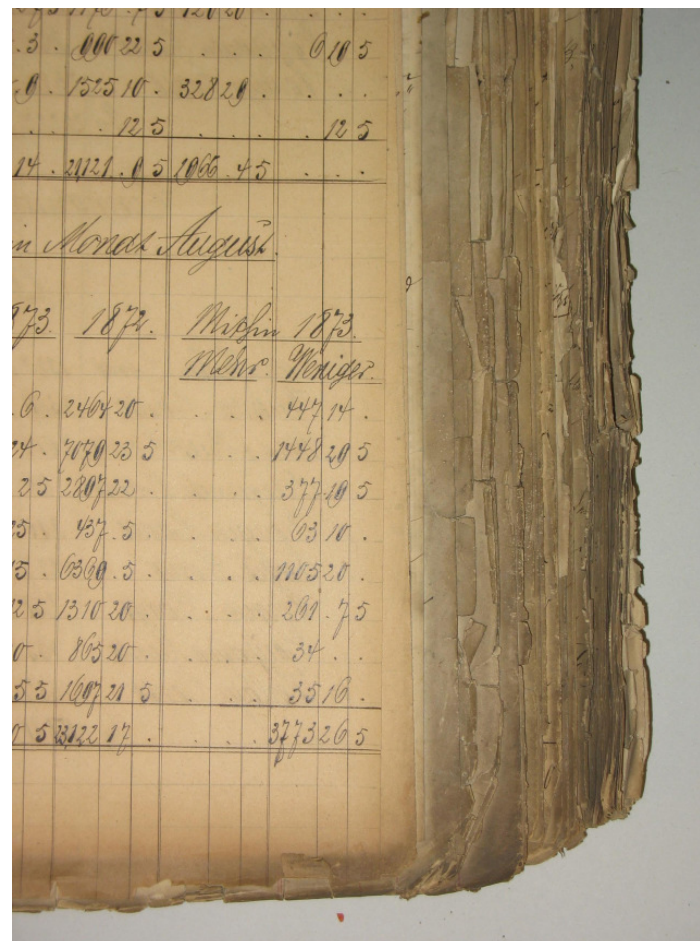 .3 . 990 22 5 . . . . 6 19 5
9 . 1525 10 . 328 29 . . . .
. . . 12 5 . . . . 12 5
14 . 21121 . 9 5 1966 . 4 5 . . .
Monat August.
73. 1872. Mithin 1873.
Mehr. Weniger.
. 6 . 2464 20 . . . . 447 14 .
24 . 7079 23 5 . . . 1448 29 5
25 2897 22 . . . . 377 19 5
25 . 437 . 5 . . . . 63 10 .
15 . 6369 . 5 . . . . 1105 20 .
12 5 1310 20 . . . . 261 . 7 5
0 . 865 20 . . . . 34 . .
5 5 1697 21 5 . . . 35 16 .
0 5 23122 17 . . . . 3773 26 5